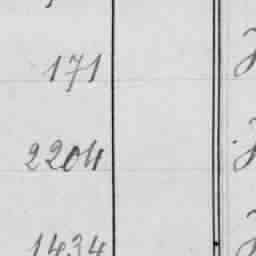 171
2204
1434